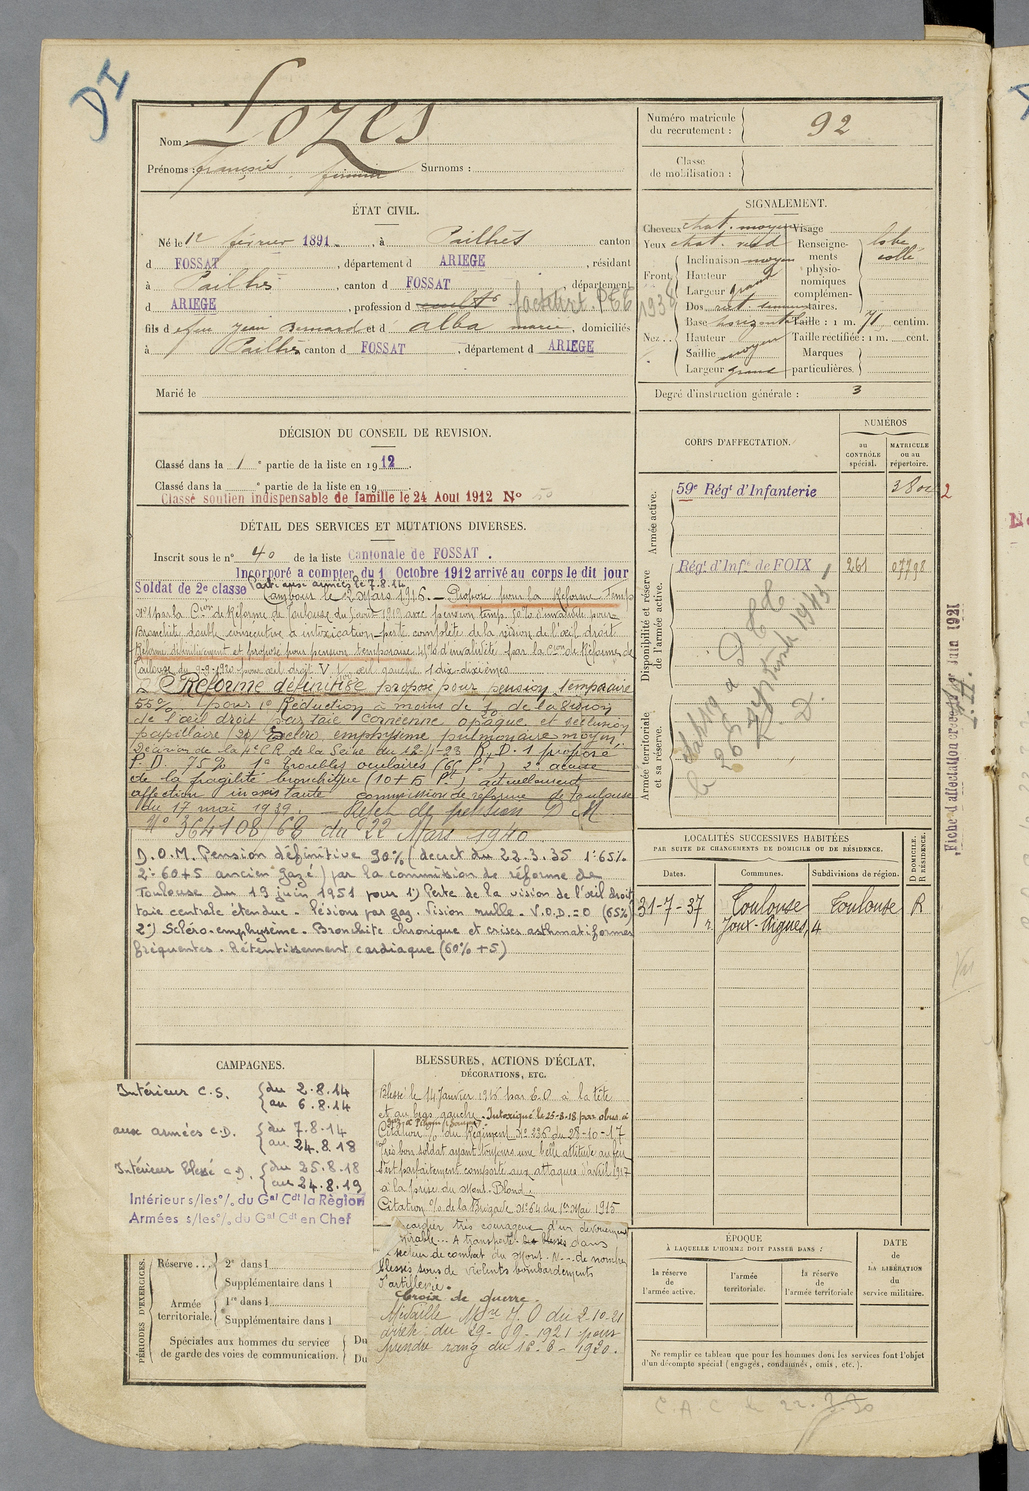 DI
Nom : Lozes
Prénoms : françois, firmin Surnoms :
ÉTAT CIVIL.
Né le 12 février 1891, à Pailhès canton
d FOSSAT, département d ARIEGE, résidant
à Pailhès, canton d FOSSAT, département
d ARIEGE, profession d cult facteur PTT 1938
fils d Jean Bernard et d' alba marie, domiciliés
à Pailhès canton d FOSSAT, département d ARIEGE
Marié le
DÉCISION DU CONSEIL DE REVISION.
Classé dans la 1e partie de la liste en 1912.
Classé dans la e partie de la liste en 19
Classé soutien indispensable de famille le 24 Aout 1912 No 50
DÉTAIL DES SERVICES ET MUTATIONS DIVERSES.
Inscrit sous le no 40 de la liste Cantonale de FOSSAT.
Incorporé a compter du 1 Octobre 1912 arrivé au corps le dit jour
Soldat de 2e classe Parti aux armées le 7.8.14
Proposé pour la Réforme Temp
No 1 par la Con de Réforme de Toulouse du 1919 avec pension temp. 50% d'invalidité pour
Bronchite double consecutive a intoxication - perte complète de la vision de l'œil droit
Réformé définitivement et proposé pour pension temporaire d'invalidité par la Con de Réforme de
Toulouse du 9-9-1920 pour œil droit V œil gauche 1 dix-dixièmes
Réforme définitive proposé pour pension temporaire
55% pour 1o Réduction à moins de de la vision
de l'œil droit par taie cornéenne opaque et séclusion
papillaire 2o Scléro emphysème pulmonaire moyen
Décision de la 4e C.R. de la Seine du 12-4-23 R.D. 1 proposé
P.D. 75% 1o Troubles oculaires (65 Pt) 2o accuse
de la fragilité bronchique (10+5 Pt) actuellement
affection inexistante commission de réforme de Toulouse
du 17 mai 1939. Rejet de pension D M
No 364108/68 du 22 Mars 1940
D.O.M. Pension définitive 90% (décret du 22.3.35 1o 65%
2o 60+5 ancien gazé) par la commission de réforme de
Toulouse du 19 juin 1951 pour 1) Perte de la vision de l'œil droit
taie centrale étendue - Lésions par gaz. Vision nulle - V.O.D.=0 (65%)
2o) Scléro-emphysème - Bronchite chronique et crises asthmatiformes
fréquentes - Retentissement cardiaque (60% +5)
CAMPAGNES.
Intérieur C.S. du 2.8.14
au 6.8.14
aux armées C.D. du 7.8.14
au 24.8.18
Intérieur blessé C.D. du 25.8.18
au 24.8.19
Intérieur s/les o/o du Gal Cdt la Région
Armées s/les o/o du Gal Cdt en Chef
PÉRIODES D'EXERCICES.
Réserve... 2e dans l
Supplémentaire dans l
Armée territoriale. 1re dans l
Supplémentaire dans l
Spéciales aux hommes du service Du
de garde des voies de communication. Du
BLESSURES, ACTIONS D'ÉCLAT,
DÉCORATIONS, ETC.
Blessé le 14 Janvier 1915 par E.O à la tête
et au bras gauche - Intoxiqué le 25-3-18 par obus à
Citation o/o du Régiment No 236 du 28-10-17
Très bon soldat ayant toujours une belle attitude au feu
s'est parfaitement comporté aux attaques d'avril 1917
à la prise du Mont-Blond.
Citation o/o de la Brigade No 64 du 1er Mai 1915
très courageux d'un dévouement
A transporté les blessés dans
de combat du Mont. de nombreux
blessés sous de violents bombardements
d'artillerie.
Croix de guerre.
Médaille Mre J.O du 2.10.21
arrêté du 29-09-1921 pour
prendre rang du 16-6-1920.
Numéro matricule
du recrutement : 92
Classe
de mobilisation :
SIGNALEMENT.
Cheveux chat. moyen Visage
Yeux chat. verd
Front Inclinaison moyen
Hauteur
Largeur grand
Nez Dos rect.
Base horizontale
Hauteur
Saillie moyen
Largeur grand
Renseignements physionomiques complémentaires. lobe collé
Taille : 1 m. 71 centim.
Taille rectifiée : 1 m. cent.
Marques
particulières.
Degré d'instruction générale : 3
CORPS D'AFFECTATION.
NUMÉROS
au CONTRÔLE spécial.
MATRICULE ou au répertoire.
Armée active.
59e Régt d'Infanterie
Disponibilité et réserve de l'armée active.
Régt d'Infie de FOIX 261 07798
Armée territoriale et sa réserve.
Fiche d'affectation créée le Juin 1921
LOCALITÉS SUCCESSIVES HABITÉES
PAR SUITE DE CHANGEMENTS DE DOMICILE OU DE RÉSIDENCE.
D DOMICILE. R RÉSIDENCE.
Dates. Communes. Subdivisions de région.
31-7-37 Toulouse Toulouse R
r. Joux-Aigues, 4
ÉPOQUE
À LAQUELLE L'HOMME DOIT PASSER DANS :
la réserve de l'armée active.
l'armée territoriale.
la réserve de l'armée territoriale
DATE
de
LA LIBÉRATION
du
service militaire.
Ne remplir ce tableau que pour les hommes dont les services font l'objet
d'un décompte spécial (engagés, condamnés, omis, etc.).